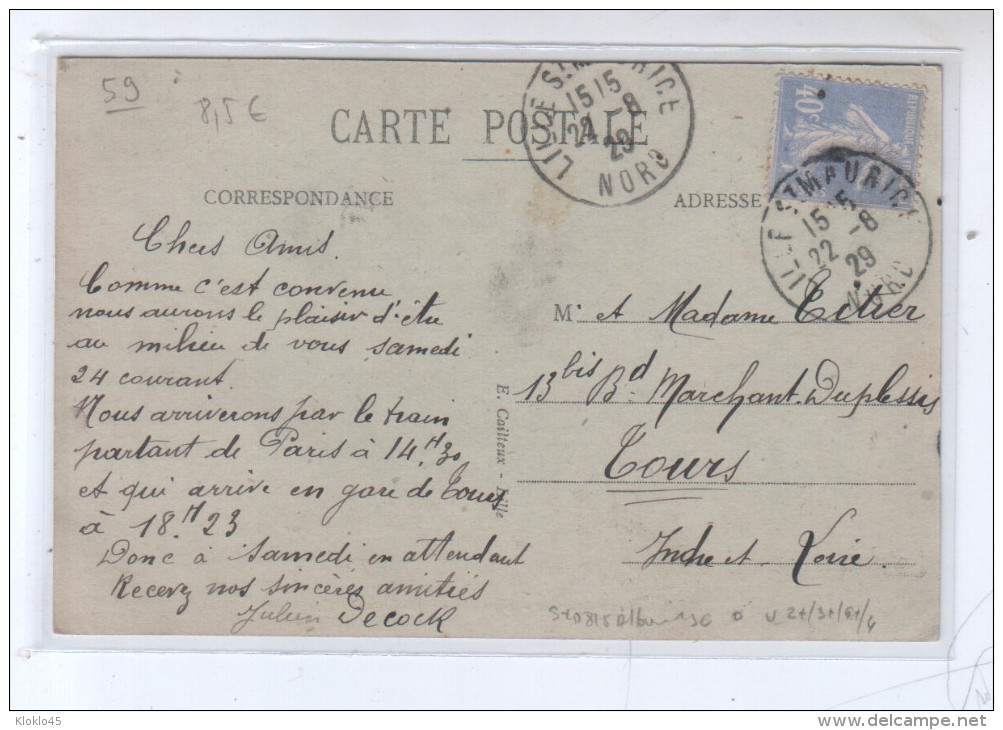 59
8,5 €
CARTE POSTALE
LILLE ST MAURICE
15 15
22 -8
29
NORD
40c
LILLE ST MAURICE
15 15
22 -8
29
NORD
CORRESPONDANCE
ADRESSE
Chers Amis.
Comme c'est convenu
nous aurons le plaisir d'être
au milieu de vous samedi
24 courant.
Nous arriverons par le train
partant de Paris à 14.H30
et qui arrive en gare de Tours
à 18.H23
Donc à samedi en attendant
Recevez nos sincères amitiés
Julien Decock
E. Cailteux - Lille
Mr et Madame
13bis Bd. Marchant-Duplessis
Tours
Indre et Loire.
Kloklo45
www.delcampe.net